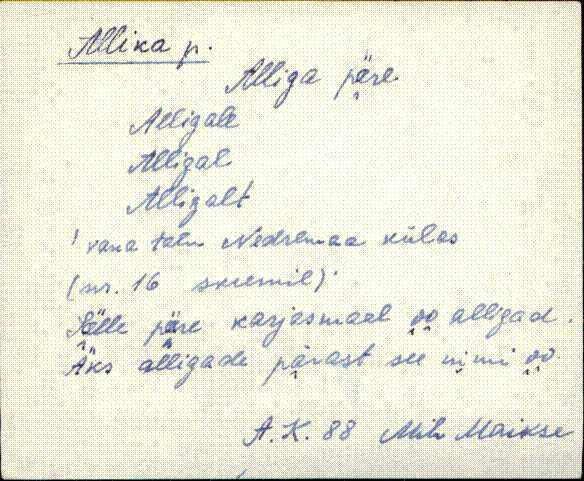 Allika p.
Alliga päre
Alligale
Alligal
Alligalt
' vana talu Nedremaa külas
(nr. 16 skeemil)'
Sälle päre karjasmaal oo alligad.
Äks alligade pärast see nimi oo.
A. K. 88 Mih Maikse